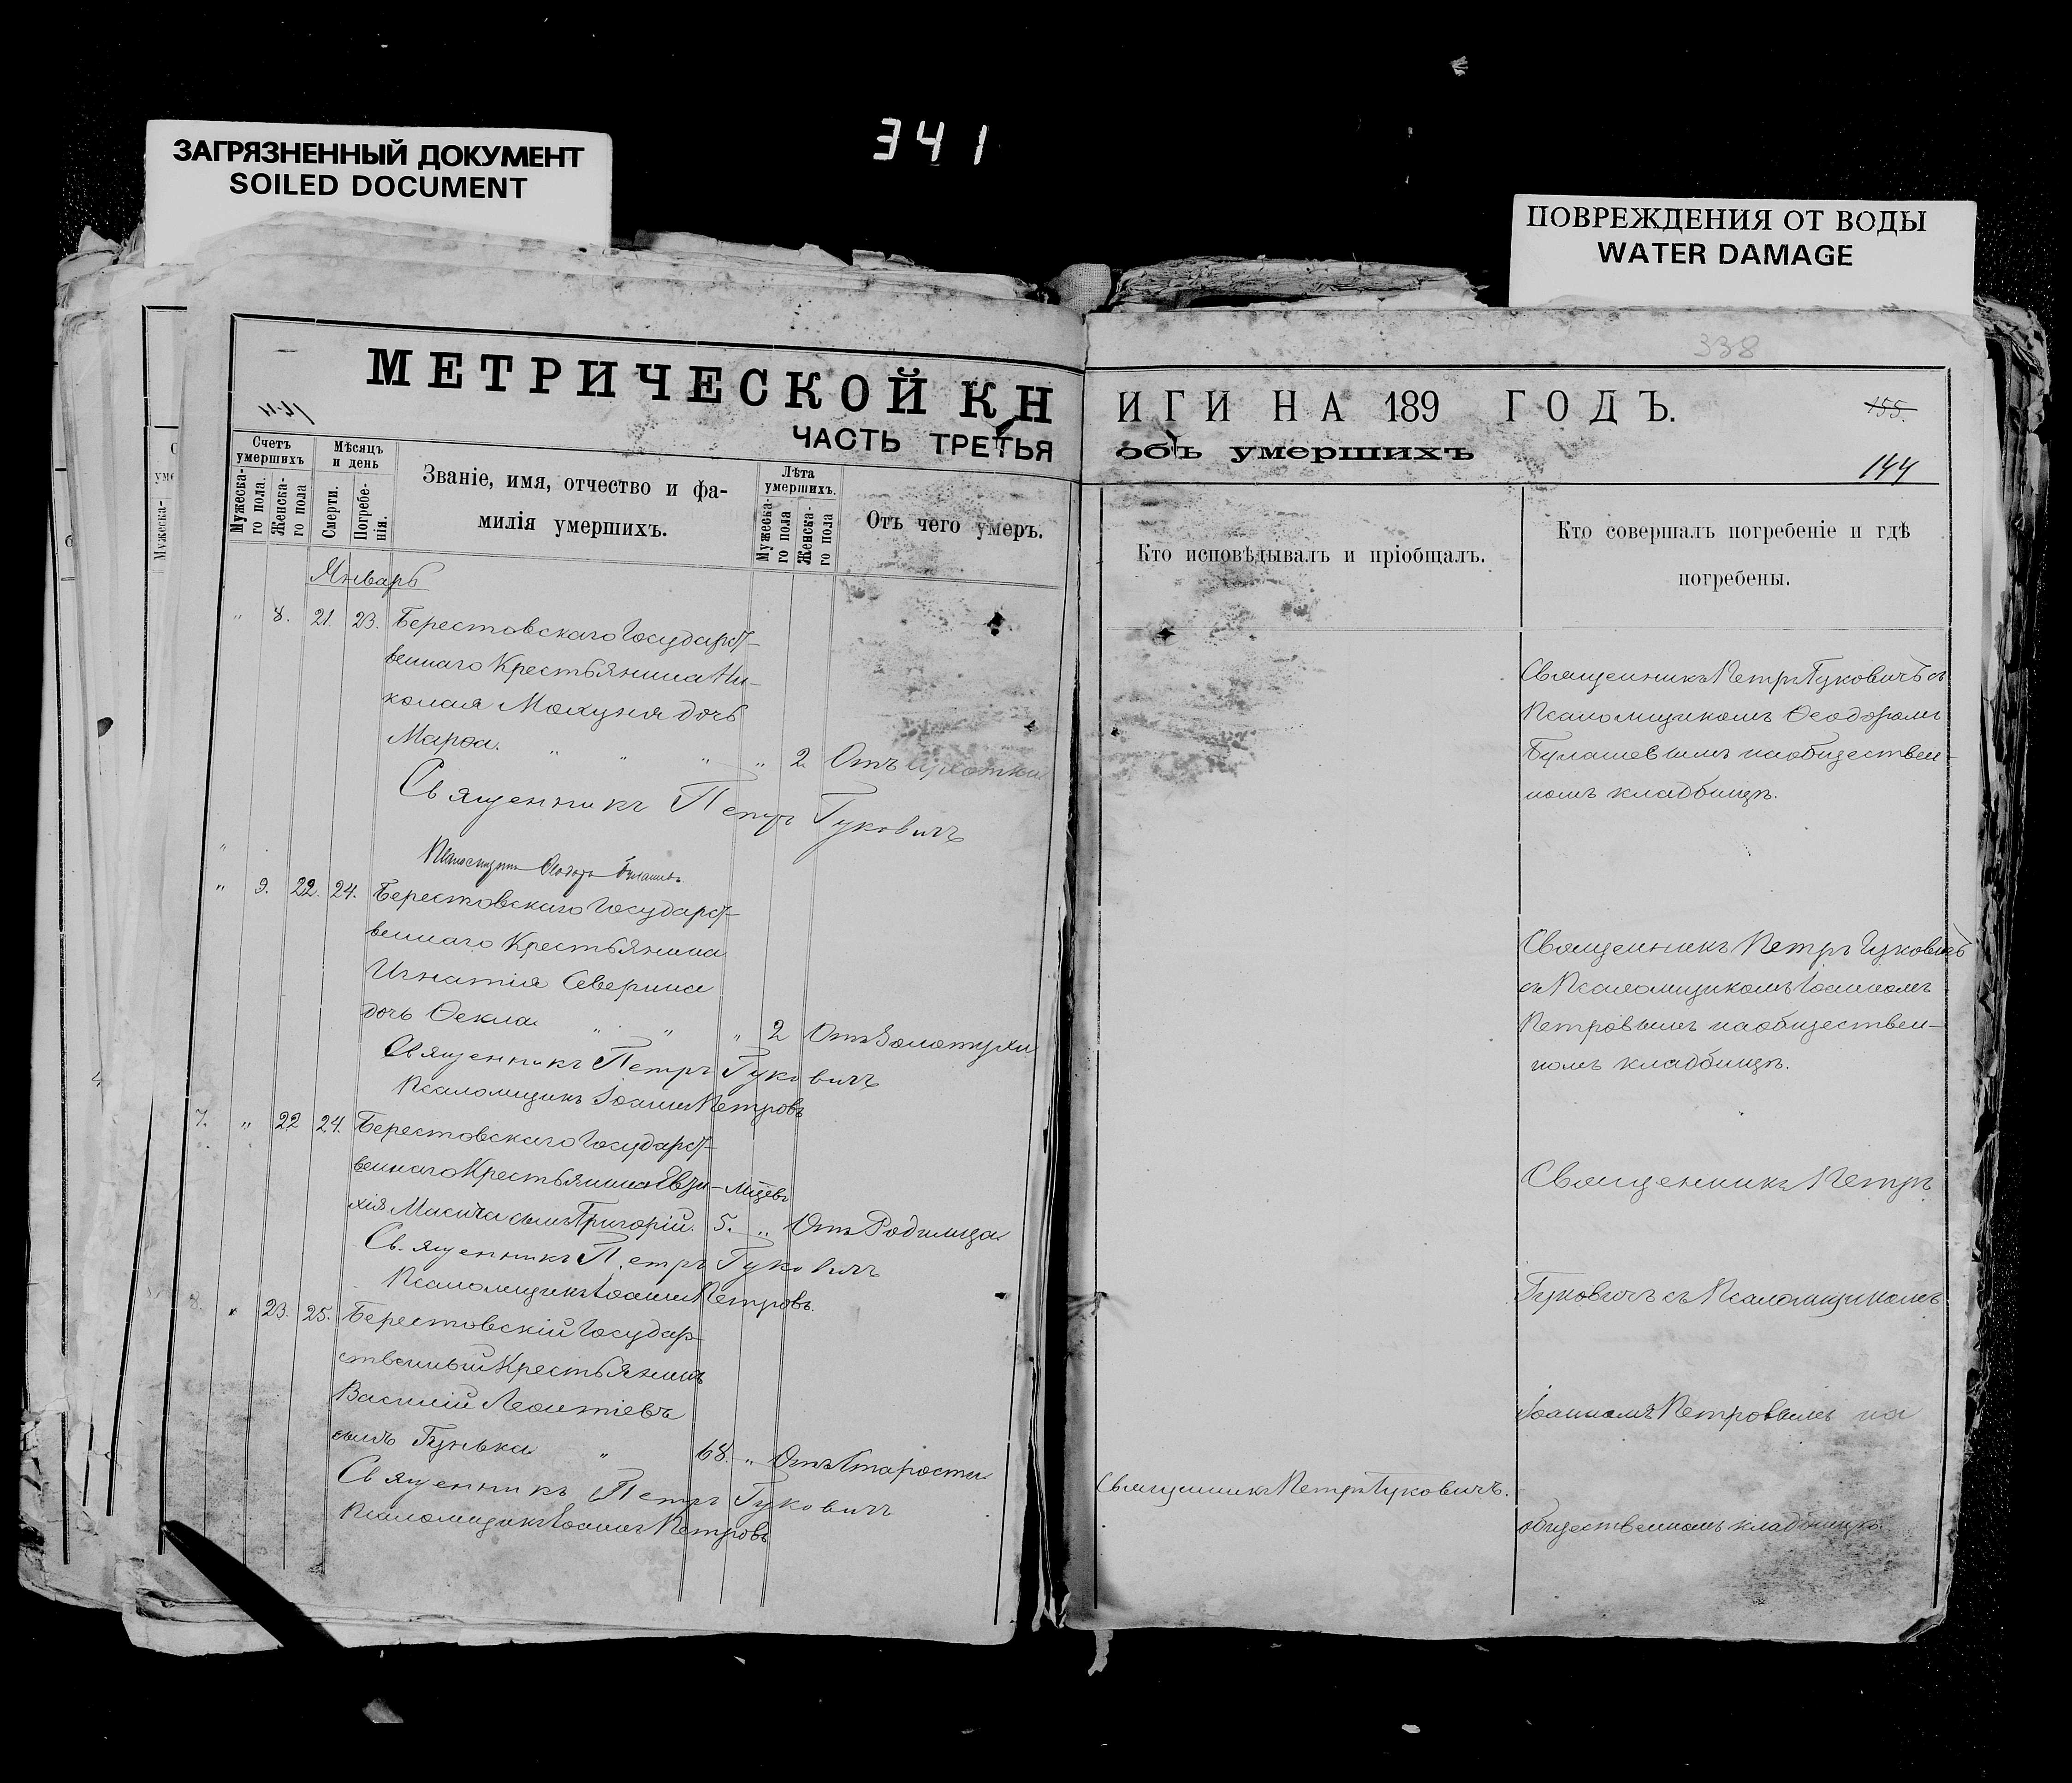 341
ЗАГРЯЗНЕННЫЙ ДОКУМЕНТ
SOILED DOCUMENT
ПОВРЕЖДЕНИЯ ОТ ВОДЫ
WATER DAMAGE
338
МЕТРИЧЕСКОЙ КН
ЧАСТЬ ТРЕТЬЯ
Счетъ умершихъ
Мужеска-го пола.
Женска-го пола
Мѣсяцъ и день
Смерти.
Погребе-нія.
Званіе, имя, отчество и фа-
милія умершихъ.
Лѣта умершихъ.
Мужеска-го пола
Женска-го пола
Отъ чего умеръ.
Январь
" 8. 21. 23. Берестовскаго Государст-
веннаго Крестьянина Ни-
колая Мохуня дочь
Марѳа. " " " " 2 Отъ
Священникъ Петръ Гуковичъ
Псаломщикъ Ѳеодоръ Булашевъ
" 9. 22. 24. Берестовскаго Государст-
веннаго Крестьянина
Игнатія Северина
дочь Ѳекла " " " 2 Отъ Золотухи
Священникъ Петръ Гуковичъ
Псаломщикъ Іоаннъ Петровъ
7. " 22 24. Берестовскаго Государст-
веннаго Крестьянина Евти- мѣсяц.
хія Масича сынъ Григорій. 5. " Отъ Родимца
Священникъ Петръ Гуковичъ
Псаломщикъ Іоаннъ Петровъ.
8. " 23. 25. Берестовскій Государ-
ственный Крестьянинъ
Василій Леонтіевъ
сынъ Гунька " 68. " Отъ Старости
Священникъ Петръ Гуковичъ
Псаломщикъ Іоаннъ Петровъ
ИГИ НА 189 ГОДЪ.
155.
объ умершихъ
144
Кто исповѣдывалъ и пріобщалъ.
Кто совершалъ погребеніе и гдѣ
погребены.
Священникъ Петръ Гуковичъ съ
Псаломщикомъ Ѳеодоромъ
Булашевымъ на обществен-
номъ кладбищѣ.
Священникъ Петръ Гуковичъ
съ Псаломщикомъ Іоанномъ
Петровымъ на обществен-
номъ кладбищѣ.
Священникъ Петръ
Гуковичъ съ Псаломщикомъ
Іоанномъ Петровымъ на
Священникъ Петръ Гуковичъ.
общественномъ кладбищѣ.